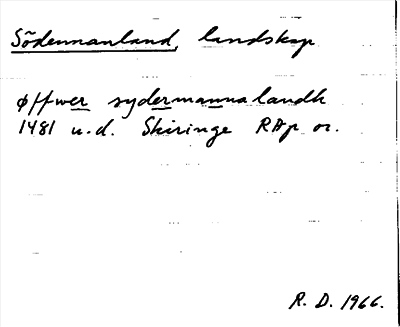 Södermanland, landskap
øffwer sydermannalandh
1481 u.d. Skiringe RAp or.
R. D. 1966.